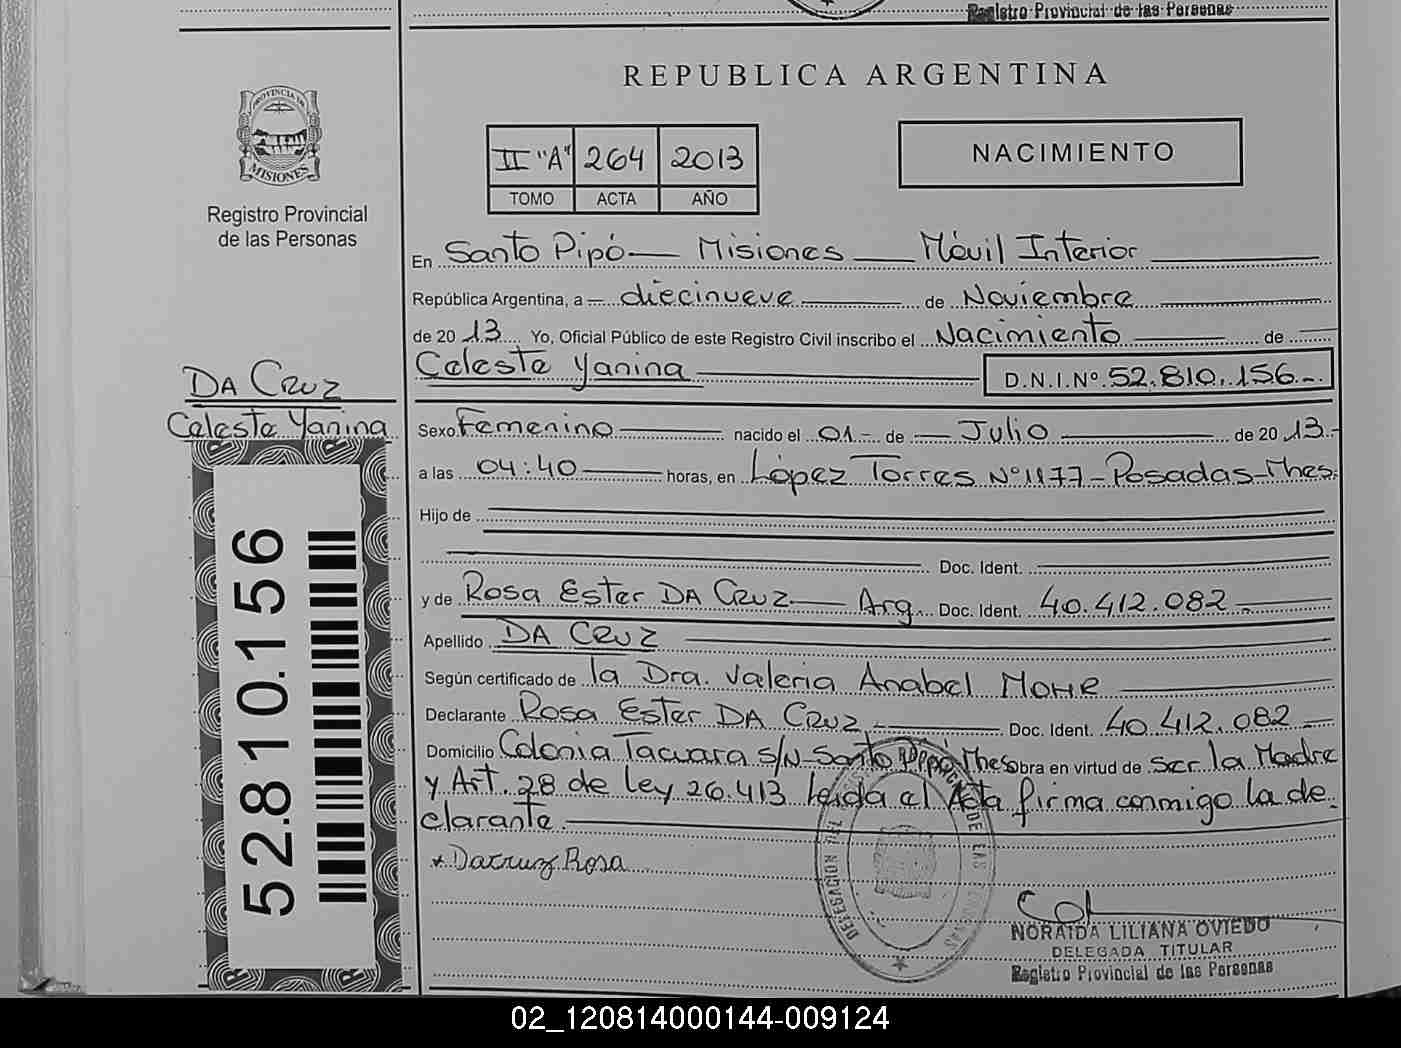 Registro Provincial de las Personas
REPUBLICA ARGENTINA
PROVINCIA DE
MISIONES
Registro Provincial
de las Personas
II "A" 264 2013
TOMO ACTA AÑO
NACIMIENTO
En Santo Pipó — Misiones — Móvil Interior
República Argentina, a — diecinueve de Noviembre
de 2013 Yo, Oficial Público de este Registro Civil inscribo el Nacimiento de
Celeste Yanina D.N.I.Nº 52.810.156
DA CRUZ
Celeste Yanina
52.810.156
Sexo Femenino nacido el 01 - de — Julio de 2013.-
a las 04:40 horas, en López Torres Nº 1177 - Posadas - Mnes.
Hijo de
Doc. Ident.
y de Rosa Ester DA CRUZ — Arg. Doc. Ident. 40.412.082
Apellido DA CRUZ
Según certificado de la Dra. Valeria Anabel MOHR
Declarante Rosa Ester DA CRUZ Doc. Ident. 40.412.082
Domicilio Colonia Tacuara s/N - Santo Pipó Mnes obra en virtud de ser la Madre
y Art. 28 de ley 26.413 leída el Acta firma conmigo la de-
clarante.
* Dacruz Rosa
DELEGACION DEL DE LAS PERSONAS
NORAIDA LILIANA OVIEDO
DELEGADA TITULAR
Registro Provincial de las Personas
02_120814000144-009124